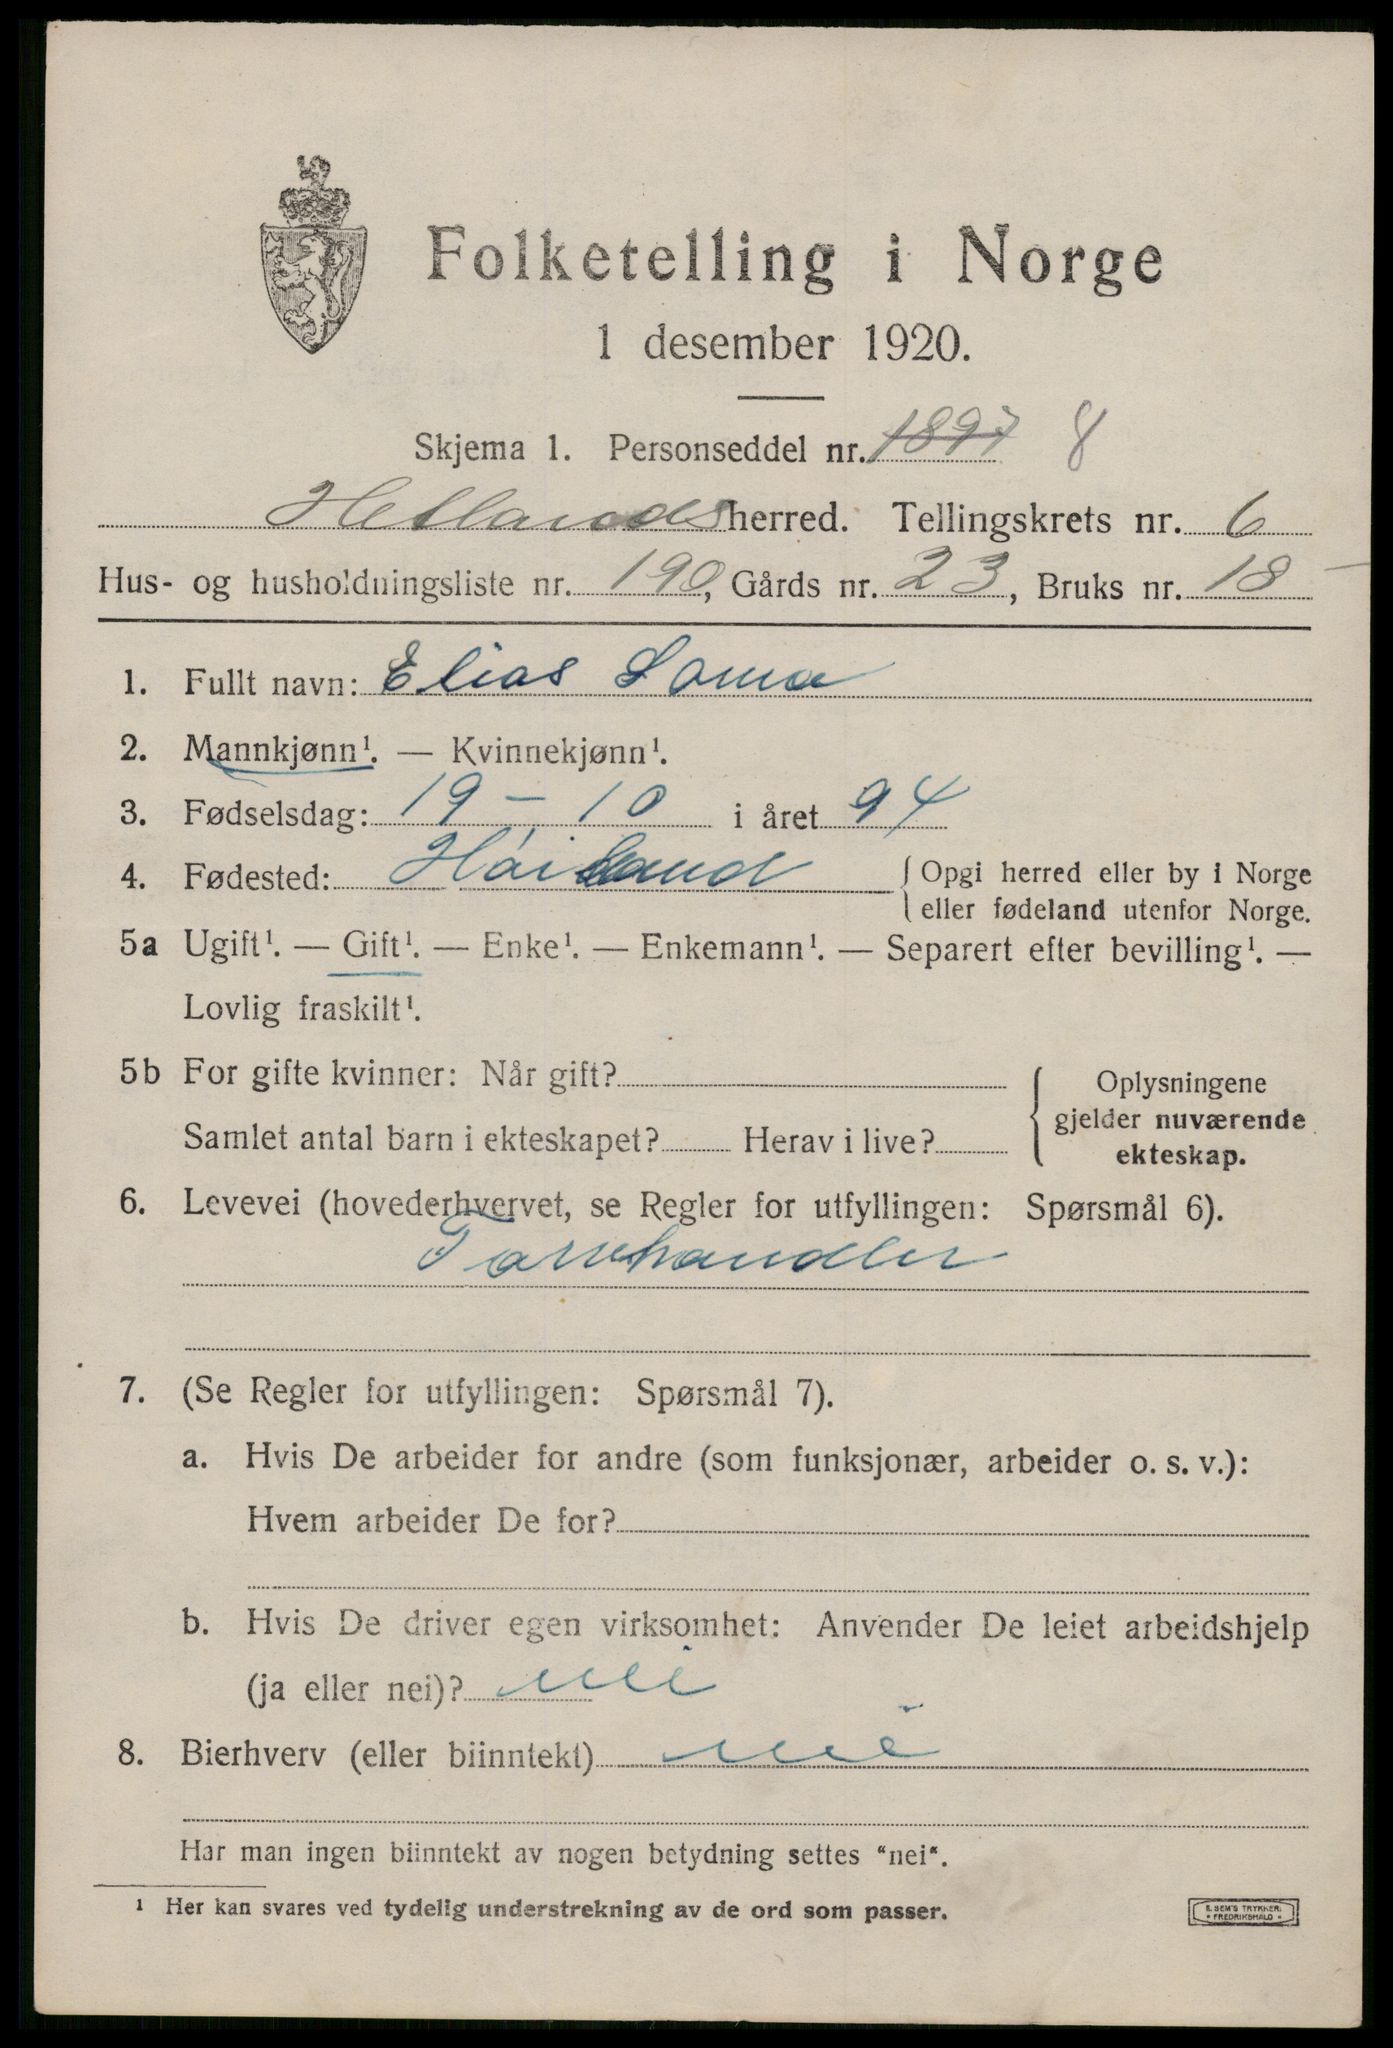 Folketelling i Norge
1 desember 1920.
Skjema 1. Personseddel nr. 1897 8
Hetlands herred. Tellingskrets nr. 6
Hus- og husholdningsliste nr. 190, Gårds nr. 23, Bruks nr. 18
1. Fullt navn: Elias Soma
2. Mannkjønn¹. — Kvinnekjønn¹.
3. Fødselsdag: 19 - 10 i året 94
4. Fødested: Høiland { Opgi herred eller by i Norge
eller fødeland utenfor Norge.
5a Ugift¹. — Gift¹. — Enke¹. — Enkemann¹. — Separert efter bevilling¹. —
Lovlig fraskilt¹.
5b For gifte kvinner: Når gift?
Samlet antal barn i ekteskapet? Herav i live?
{ Oplysningene
gjelder nuværende
ekteskap.
6. Levevei (hovederhvervet, se Regler for utfyllingen: Spørsmål 6).
Torvhandler
7. (Se Regler for utfyllingen: Spørsmål 7).
a. Hvis De arbeider for andre (som funksjonær, arbeider o. s. v.):
Hvem arbeider De for?
b. Hvis De driver egen virksomhet: Anvender De leiet arbeidshjelp
(ja eller nei)? nei
8. Bierhverv (eller biinntekt) nei
Har man ingen biinntekt av nogen betydning settes "nei".
¹ Her kan svares ved tydelig understrekning av de ord som passer.
E. SEM'S TRYKKERI
• FREDRIKSHALD •